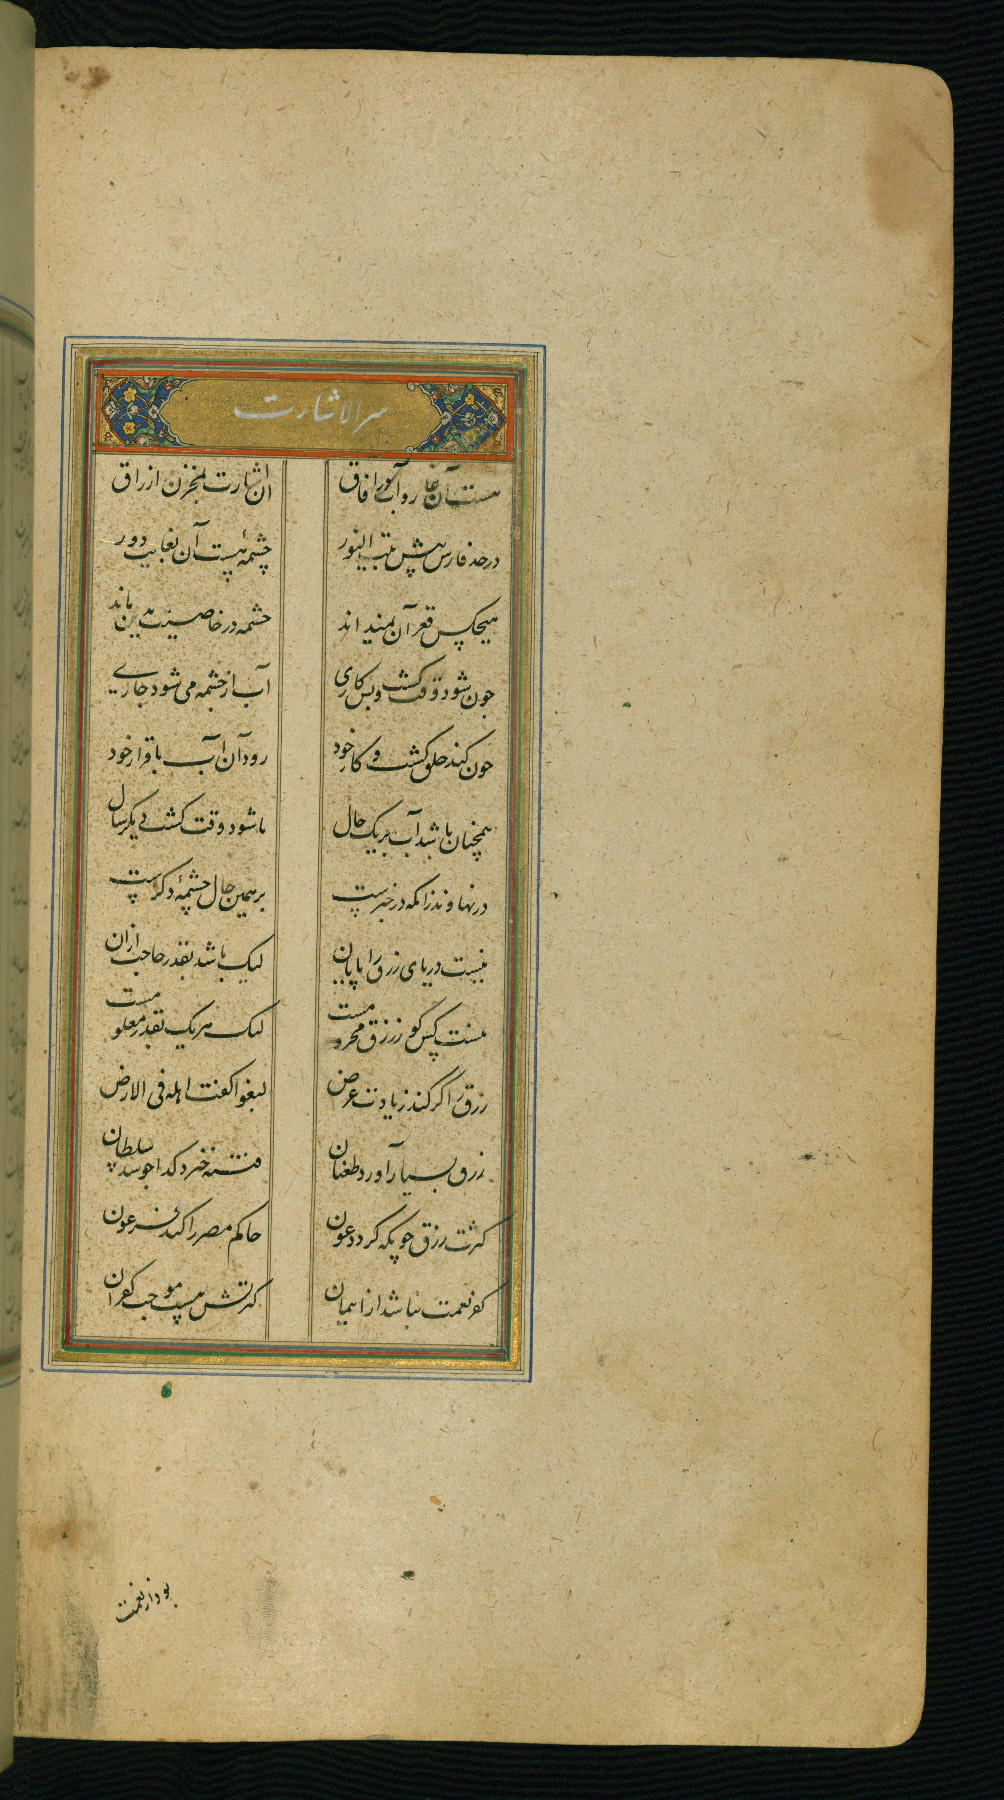 سر الاشارت
هست آن غار و آب خورافاق ان اشارت بمخزن ارزاق
درحد فارس پیش بیت النور چشمهٔ هست آن بغایت دور
هیچکس قعر آن نمیداند چشمه در خاصیت بدین ماند
چون شود وقت کشت وبس کاری آب از چشمه می شود جاری
چون کند خلق کشت و کار خود رود آن آب با قرار خود
همچنان باشد آب بر یک حال تا شود وقت کشت دیگر سال
در نهاوند زانکه در خبرست بر همین حال چشمهٔ دکرست
نیست دریای رزق را پایان لیک باشد بقدر حاجت ازان
نیست کس کو ز رزق محرومست لیک هر یک بقدر معلومست
رزق را گر کند زیادت عرض لبغوا کفت اهله فی الارض
رزق بسیار آورد طغیان فتنه خیزد کدا چو شد سلطان
کثرت رزق چونکه کرد عون حاکم مصر را کند فرعون
کفر نعمت نباشد از ایمان کثرتش هست موجب کفران
بود از نعمت